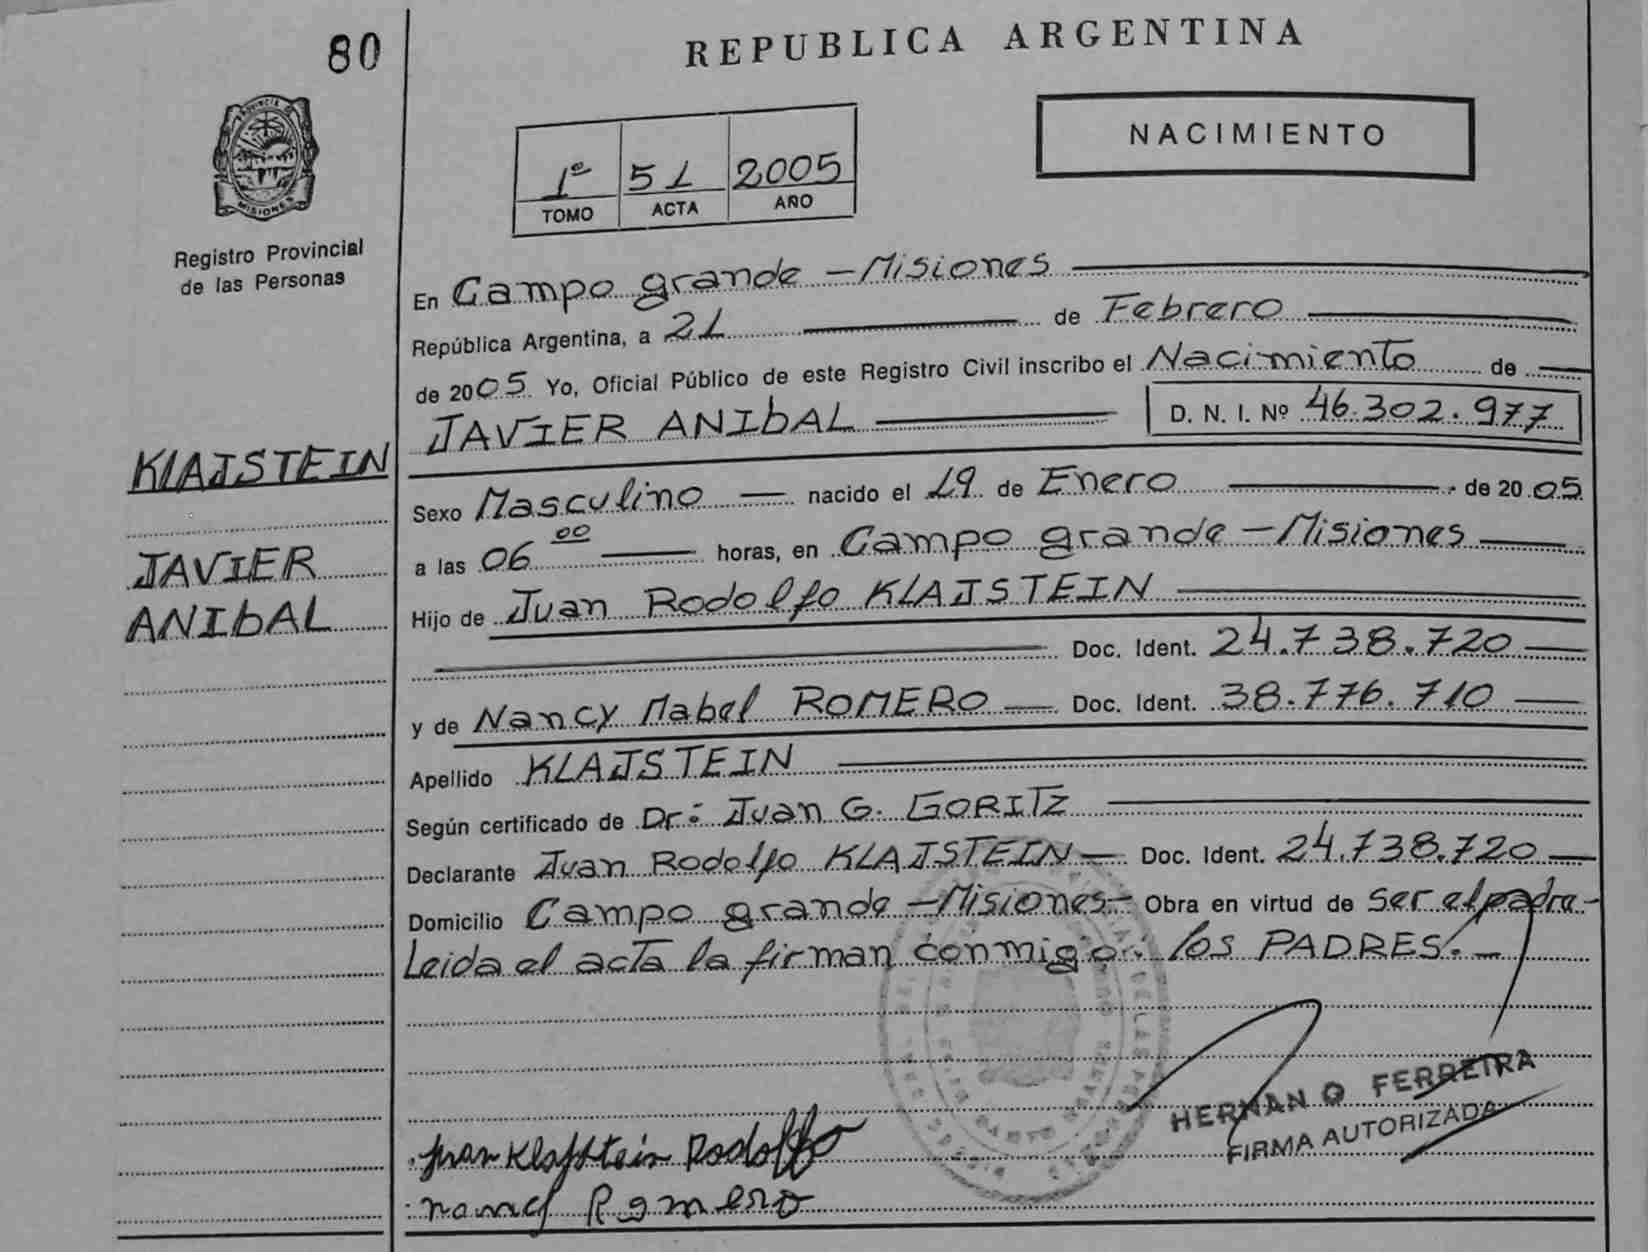 80
REPUBLICA ARGENTINA
PROVINCIA DE
MISIONES
Registro Provincial
de las Personas
NACIMIENTO
1º 51 2005
TOMO ACTA AÑO
En Campo grande - Misiones
República Argentina, a 21 de Febrero
de 2005 Yo, Oficial Público de este Registro Civil inscribo el Nacimiento de
JAVIER ANIbAL D. N. I. Nº 46.302.977
KLAJSTEIN
JAVIER
ANIbAL
Sexo Masculino nacido el 19 de Enero de 2005
a las 06 00 horas, en Campo grande - Misiones
Hijo de Juan Rodolfo KLAJSTEIN
Doc. Ident. 24.738.720
y de Nancy Mabel ROMERO Doc. Ident. 38.776.710
Apellido KLAJSTEIN
Según certificado de Dr: Juan G. GORITZ
Declarante Juan Rodolfo KLAJSTEIN Doc. Ident. 24.738.720
Domicilio Campo grande - Misiones - Obra en virtud de ser el padre -
Leida el acta la firman conmigo: los PADRES. -
HERNAN O FERREIRA
FIRMA AUTORIZADA
Juan Klajstein Rodolfo
nancy Romero